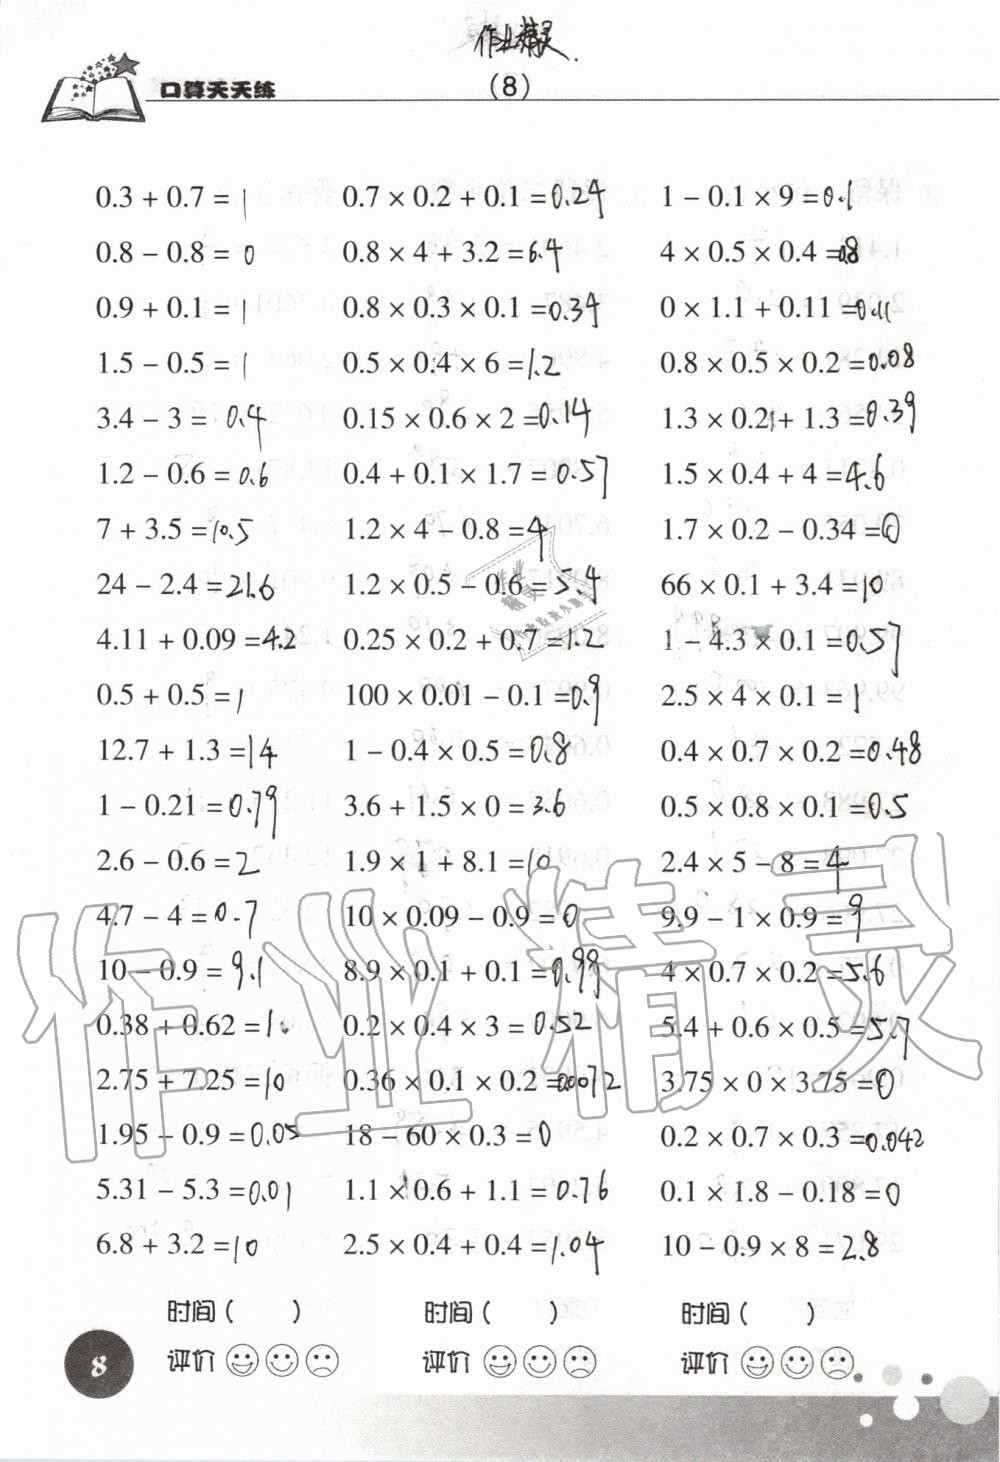 作业精灵
口算天天练
(8)
0.3 + 0.7 = 1
0.7 × 0.2 + 0.1 = 0.24
1 − 0.1 × 9 = 0.1
0.8 − 0.8 = 0
0.8 × 4 + 3.2 = 6.4
4 × 0.5 × 0.4 = 0.8
0.9 + 0.1 = 1
0.8 × 0.3 × 0.1 = 0.34
0 × 1.1 + 0.11 = 0.11
1.5 − 0.5 = 1
0.5 × 0.4 × 6 = 1.2
0.8 × 0.5 × 0.2 = 0.08
3.4 − 3 = 0.4
0.15 × 0.6 × 2 = 0.14
1.3 × 0.2 + 1.3 = 0.39
1.2 − 0.6 = 0.6
0.4 + 0.1 × 1.7 = 0.57
1.5 × 0.4 + 4 = 4.6
7 + 3.5 = 10.5
1.2 × 4 − 0.8 = 4
1.7 × 0.2 − 0.34 = 0
24 − 2.4 = 21.6
1.2 × 0.5 − 0.6 = 5.4
66 × 0.1 + 3.4 = 10
4.11 + 0.09 = 4.2
0.25 × 0.2 + 0.7 = 1.2
1 − 4.3 × 0.1 = 0.57
0.5 + 0.5 = 1
100 × 0.01 − 0.1 = 0.9
2.5 × 4 × 0.1 = 1
12.7 + 1.3 = 14
1 − 0.4 × 0.5 = 0.8
0.4 × 0.7 × 0.2 = 0.48
1 − 0.21 = 0.79
3.6 + 1.5 × 0 = 3.6
0.5 × 0.8 × 0.1 = 0.5
2.6 − 0.6 = 2
1.9 × 1 + 8.1 = 10
2.4 × 5 − 8 = 4
4.7 − 4 = 0.7
10 × 0.09 − 0.9 = 0
9.9 − 1 × 0.9 = 9
10 − 0.9 = 9.1
8.9 × 0.1 + 0.1 = 0.99
4 × 0.7 × 0.2 = 5.6
0.38 + 0.62 = 1
0.2 × 0.4 × 3 = 0.52
5.4 + 0.6 × 0.5 = 5.7
2.75 + 7.25 = 10
0.36 × 0.1 × 0.2 = 0.0072
3.75 × 0 × 3.75 = 0
1.95 − 0.9 = 0.05
18 − 60 × 0.3 = 0
0.2 × 0.7 × 0.3 = 0.042
5.31 − 5.3 = 0.01
1.1 × 0.6 + 1.1 = 0.76
0.1 × 1.8 − 0.18 = 0
6.8 + 3.2 = 10
2.5 × 0.4 + 0.4 = 1.04
10 − 0.9 × 8 = 2.8
时间 ( )
时间 ( )
时间 ( )
评价
评价
评价
8
作业精灵